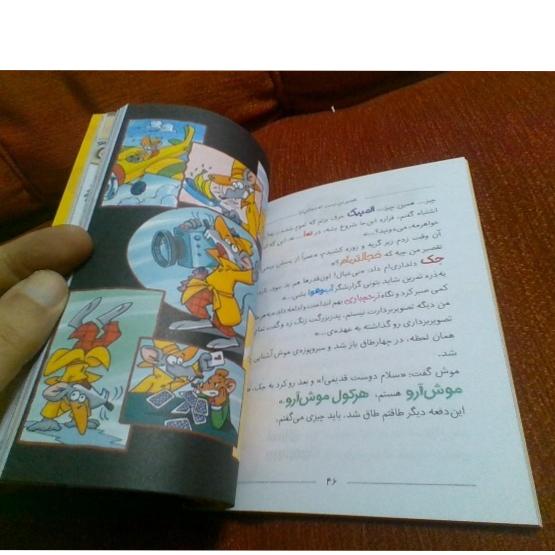 چیز... همین چیز... المپیک حرف بزنم که
اشتباه گفتم. قراره این‌ها شروع بشه، در
خواهرمه، می‌دونید؟...»
آن وقت زدم زیر گریه و زوزه کشیدم:
تقصیر من چیه که خجالتی‌ام؟»
جک دلداری‌ام داد:
یه ذره تمرین شاید بتونی گزارشگر بشی.
کمی صبر کرد و نگاه هم انداخت و ادامه داد:
من دیگه تصویربردارت نیستم. پدربزرگت زنگ زد و گفت تمام
تصویربرداری رو گذاشته به عهده‌ی...»
همان لحظه، در چهارطاق باز شد و سروپوزه‌ی موش آشنایی
شد.
موش گفت: «سلام دوست قدیمی!» و بعد رو کرد به جک.
موش‌آرو هستم. هرکول موش‌آرو.»
این‌دفعه دیگر طاقتم طاق شد. باید چیزی می‌گفتم.
۴۶